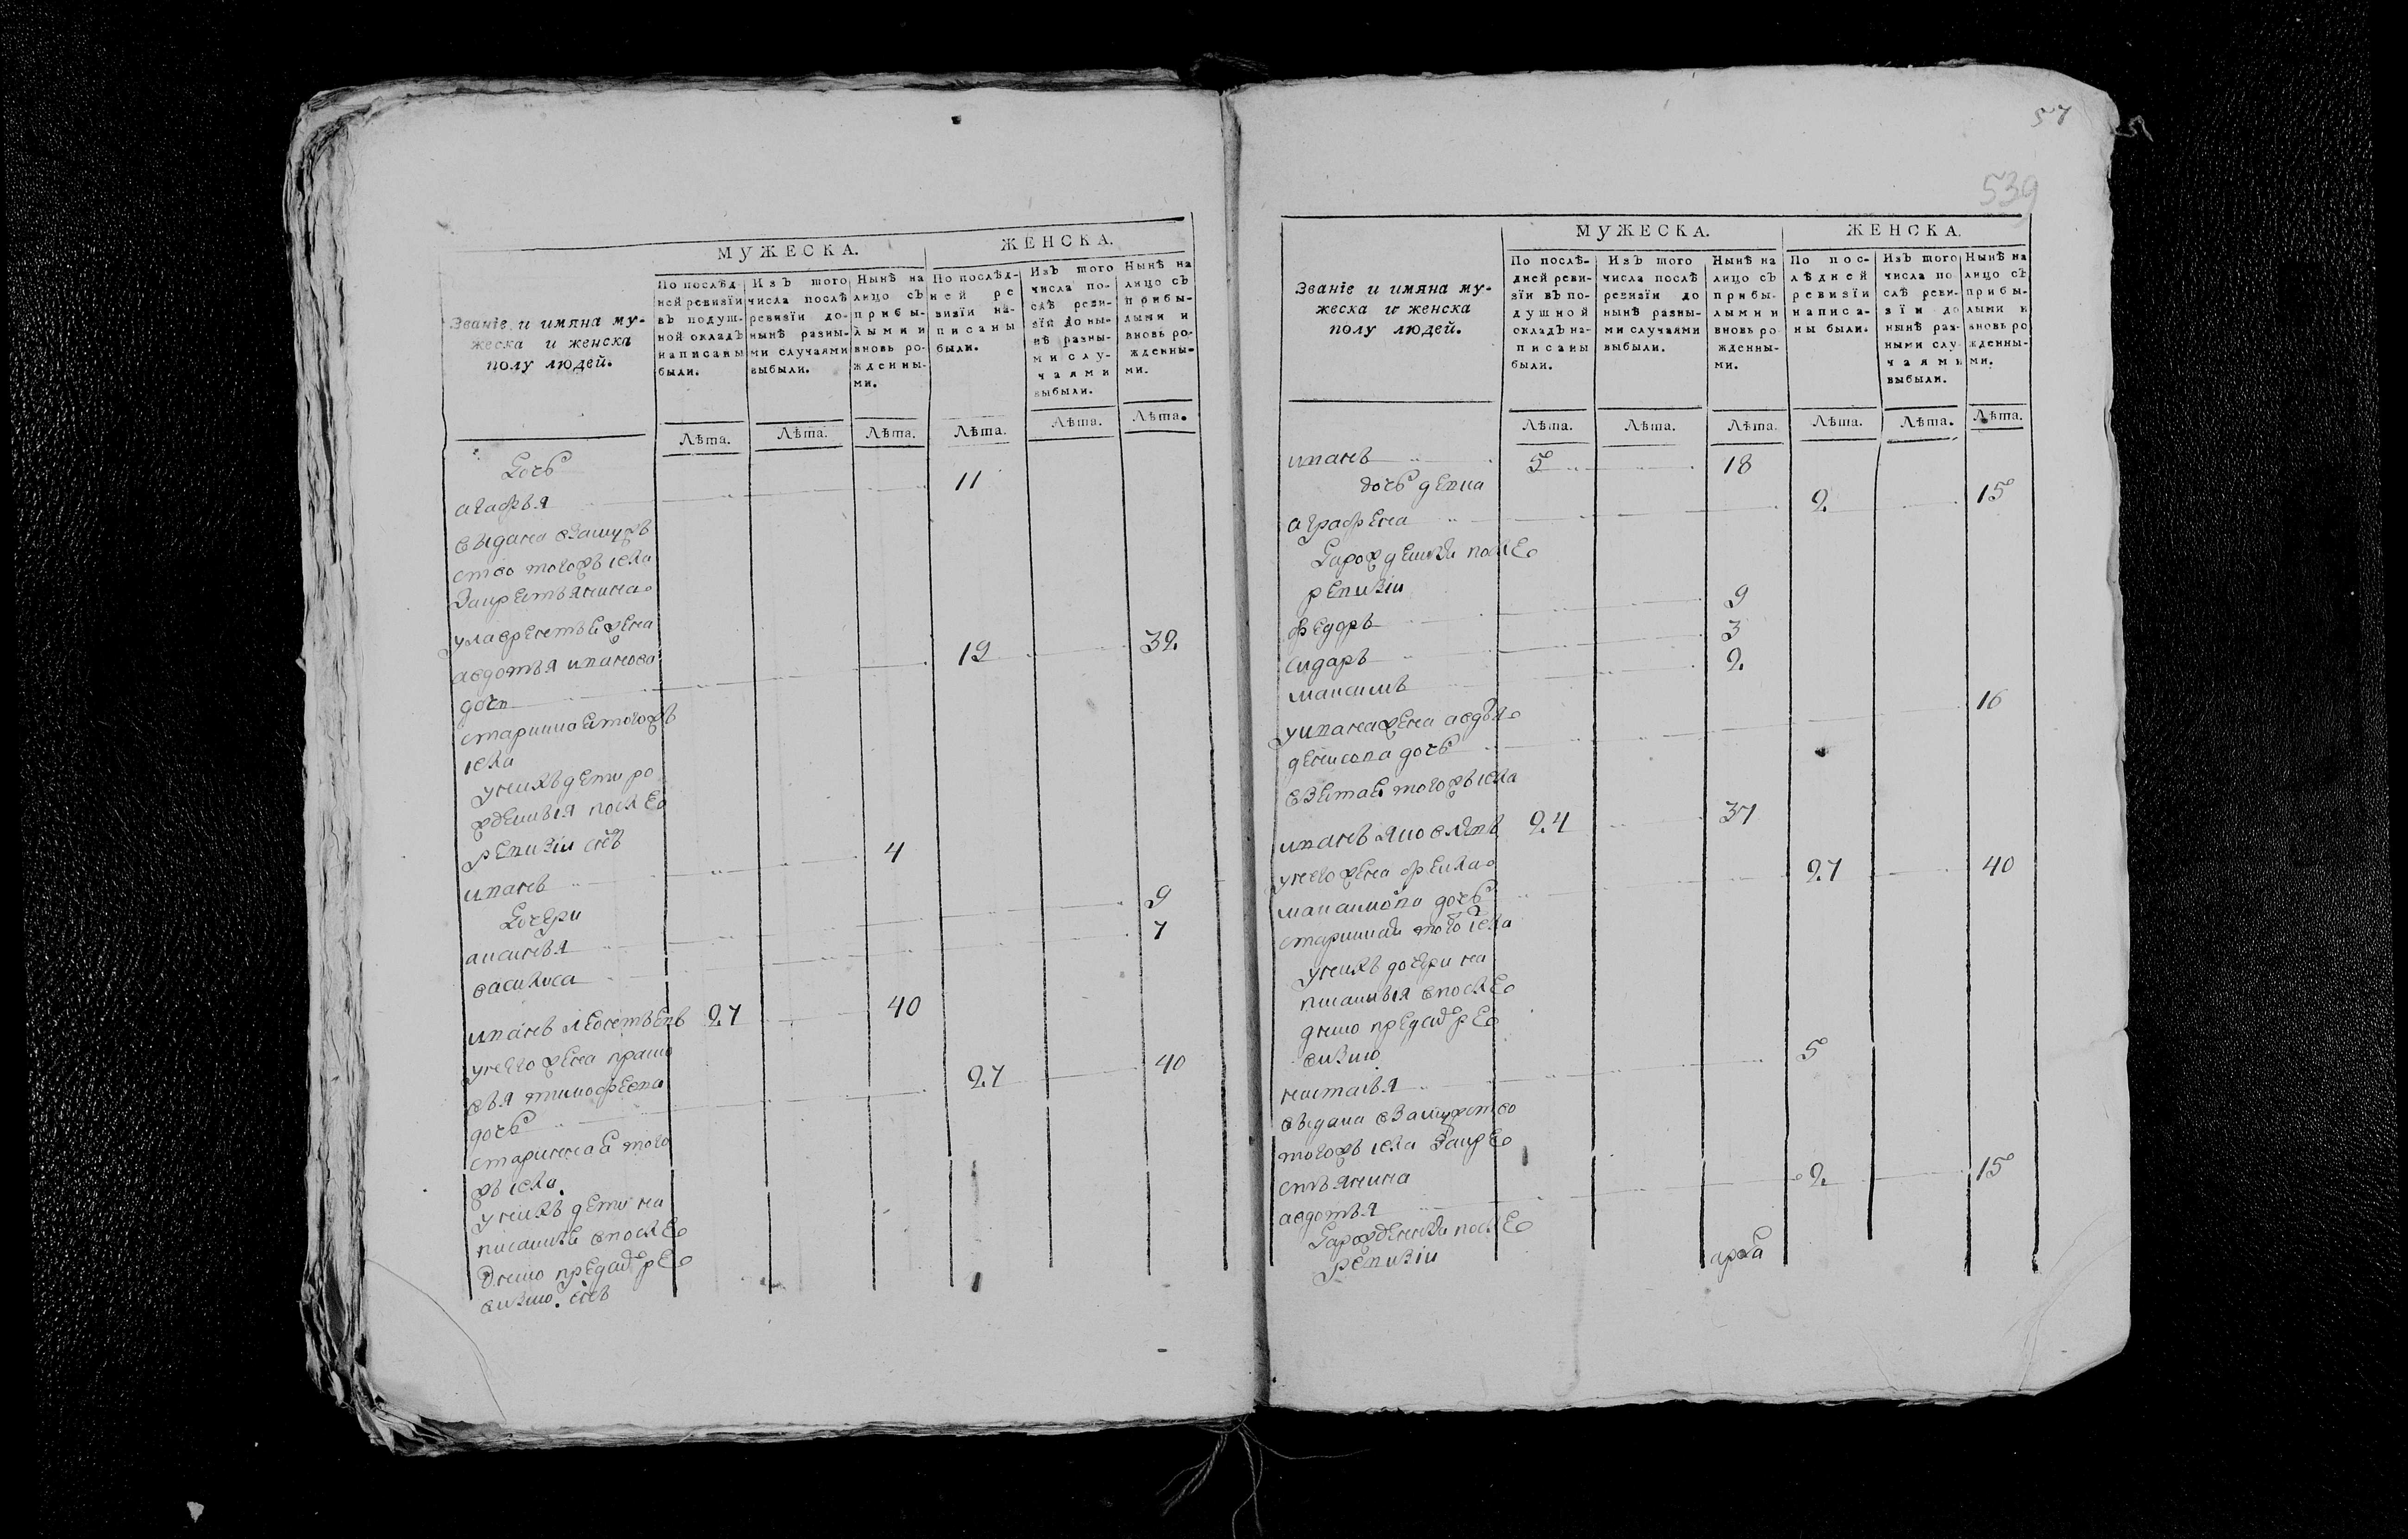 МУЖЕСКА.
ЖЕНСКА.
Званіе и имяна му-
жеска и женска
полу людей.
По послѣд-
ней ревизїи
въ подуш-
ной окладъ
написаны
были.
Изъ того
числа послѣ
ревизїи до-
нынѣ разны-
ми случаями
выбыли.
Нынѣ на
лицо съ
прибы-
лыми и
вновь ро-
жденны-
ми.
По послѣд-
ней ре
визїи на-
писаны
были.
Изъ того
числа по-
слѣ реви-
зїи до ны-
нѣ разны-
ми слу-
чаями
выбыли.
Нынѣ на
лицо съ
прибы-
лыми и
вновь ро-
жденны-
ми.
Лѣта.
Лѣта.
Лѣта.
Лѣта.
Лѣта.
Лѣта.
дочь
агафья 11
выдана взамуж
ство тогожъ села
закрестьянина
улаврентья жена
авдотья иванова
дочь 19 32
старинная тогожъ
села
унихъ дети ро
жденныя после
ревизiи снъ
иванъ 4
дочери
аксинья 9
василиса 7
иванъ леонтьевъ 27 40
унего жена праско
вья тимофеева
дочь 27 40
старинная того
жъ села
унихъ дети на
писанные впосле
днюю предсию ре
визию снъ
57
539
МУЖЕСКА.
ЖЕНСКА.
Званіе и имяна му-
жеска и женска
полу людей.
По послѣ-
дней реви-
зїи въ по-
душной
окладъ на-
писаны
были.
Изъ того
числа послѣ
ревизїи до
нынѣ разны-
ми случаями
выбыли.
Нынѣ на
лицо съ
прибы-
лыми и
вновь ро
жденны-
ми.
По пос-
лѣдней
ревизїи
написа-
ны были.
Изъ того
числа по-
слѣ реви-
зїи до
нынѣ раз-
ными слу
чаями
выбыли.
Нынѣ на
лицо съ
прибы-
лыми и
вновь ро
жденны-
ми.
Лѣта.
Лѣта.
Лѣта.
Лѣта.
Лѣта.
Лѣта.
иванъ 5 18
дочь девка
аграфена 2 15
да рожденныи после
ревизiи
федоръ 9
сидаръ 3
максимъ 2
уивана жена авдотья
денисова дочь 16
взятая тогожъ села
иванъ яковлевъ 24 37
унего жена фекла
максимова дочь 27 40
старинная того села
унихъ дочери на
писанныя впосле
днюю предсию ре
визию
настасья 5
выдана взамужство
тогожъ села закре
стьянина
авдотья 2 15
да рожденныи после
ревизiи